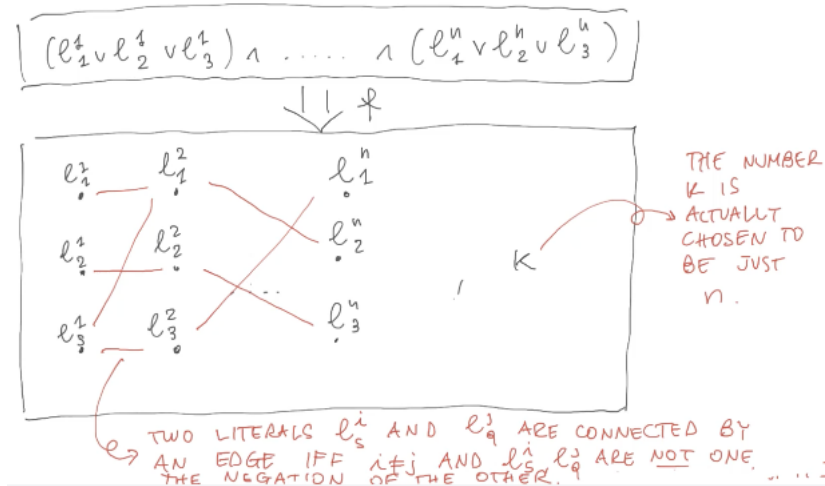 (ℓ₁¹ ∨ ℓ₂¹ ∨ ℓ₃¹) ∧ ..... ∧ (ℓ₁ⁿ ∨ ℓ₂ⁿ ∨ ℓ₃ⁿ)
f
ℓ₁¹ ℓ₁² ℓ₁ⁿ
ℓ₂¹ ℓ₂² ℓ₂ⁿ
ℓ₃¹ ℓ₃² ... ℓ₃ⁿ , K
THE NUMBER
K IS
ACTUALLY
CHOSEN TO
BE JUST
n.
TWO LITERALS ℓₛⁱ AND ℓ_qʲ ARE CONNECTED BY
AN EDGE IFF i≠j AND ℓₛⁱ ℓ_qʲ ARE NOT ONE
THE NEGATION OF THE OTHER.